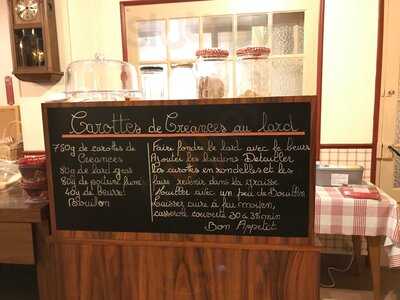 Carottes de Creances au lard
780g de carottes de
Creances
80g de lard gras
80g de poitrine fumé
40g de beurre
Bouillon
Faire fondre le lard avec le beurre
Ajouter les lardons Détailler
les carottes en rondelles et les
faire revenir dans la graisse
Mouiller avec un peu de Bouillon
Laisser cuire à feu moyen,
casserole couverte 30 à 35 min
Bon Appetit